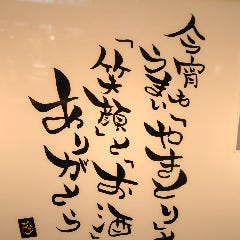 今宵も
うまい「やきとり」と
「笑顔」と「お酒」
ありがとう